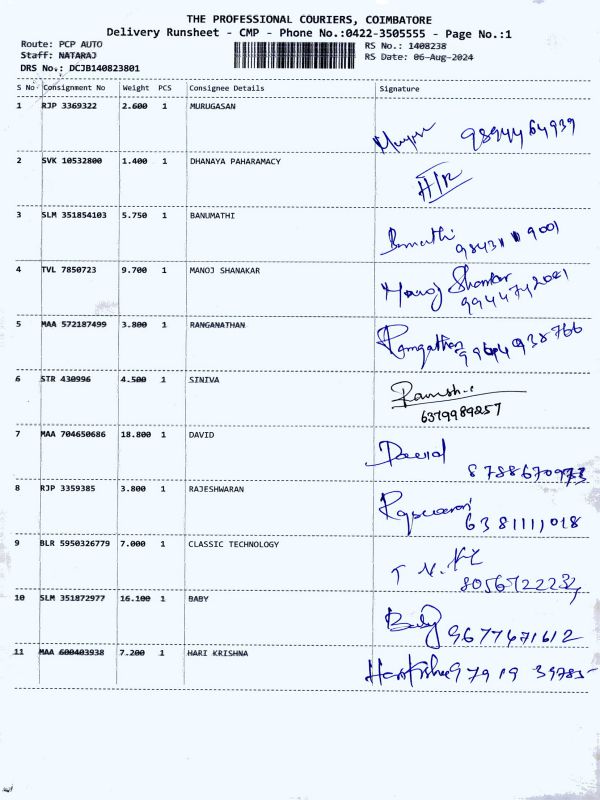 THE PROFESSIONAL COURIERS, COIMBATORE
Delivery Runsheet - CMP - Phone No.:0422-3505555 - Page No.:1
Route: PCP AUTO
RS No.: 1408238
Staff: NATARAJ
RS Date: 06-Aug-2024
DRS No.: DCJB140823801
S No Consignment No Weight PCS Consignee Details Signature
1 RJP 3369322 2.600 1 MURUGASAN
9894464939
2 SVK 10532800 1.400 1 DHANAYA PAHARAMACY
3 SLM 351854103 5.750 1 BANUMATHI
Banumathi
4 TVL 7850723 9.700 1 MANOJ SHANAKAR
Manoj Shankar
9944742001
5 MAA 572187499 3.800 1 RANGANATHAN
Ranganathan
6 STR 430996 4.500 1 SINIVA
6379989257
7 MAA 704650686 18.800 1 DAVID
David
8 RJP 3359385 3.800 1 RAJESHWARAN
6381111018
9 BLR 5950326779 7.000 1 CLASSIC TECHNOLOGY
10 SLM 351872977 16.100 1 BABY
Baby 9677471612
11 MAA 600403938 7.200 1 HARI KRISHNA
Harikrishna 97919 39785